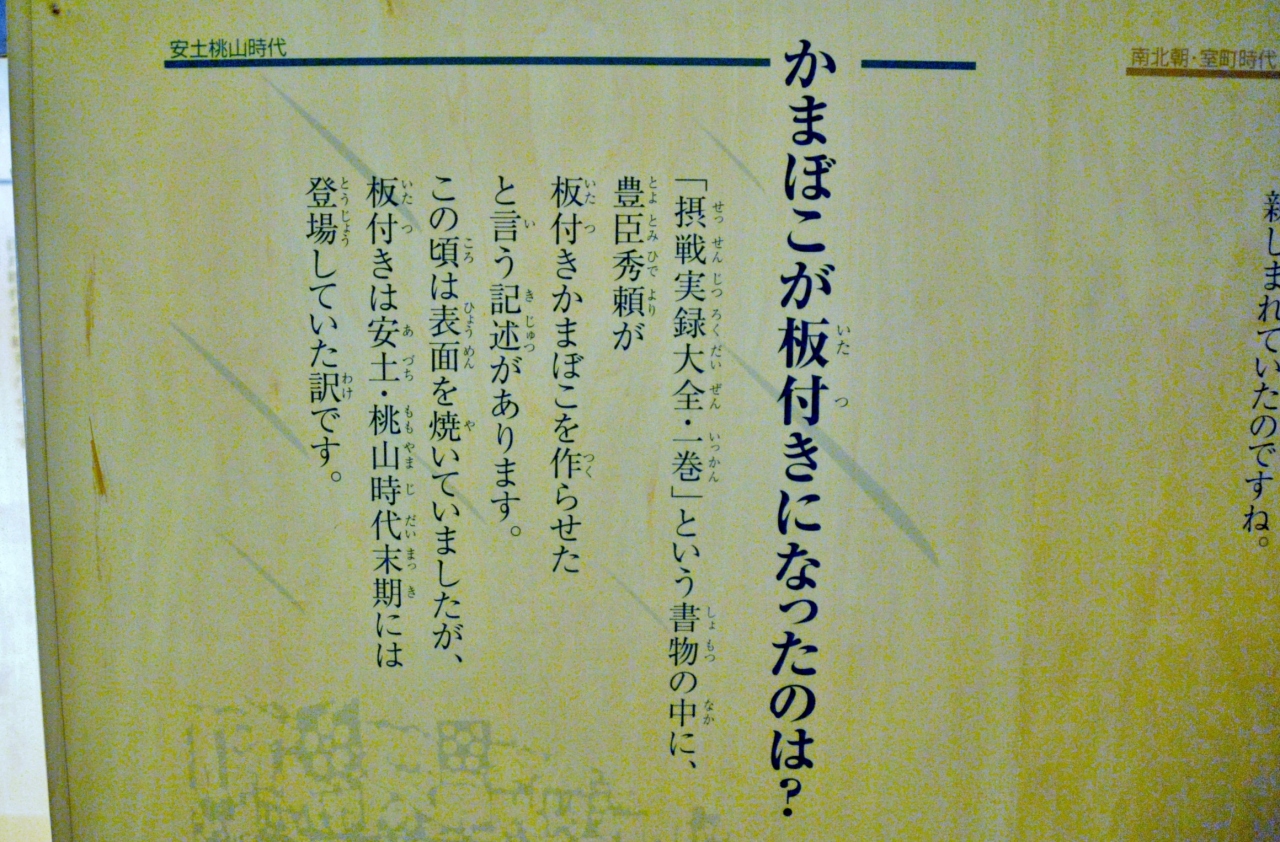 南北朝・室町時代
親しまれていたのですね。
安土桃山時代
かまぼこが板付きになったのは？
「摂戦実録大全・一巻」という書物の中に、
豊臣秀頼が
板付きかまぼこを作らせた
と言う記述があります。
この頃は表面を焼いていましたが、
板付きは安土・桃山時代末期には
登場していた訳です。